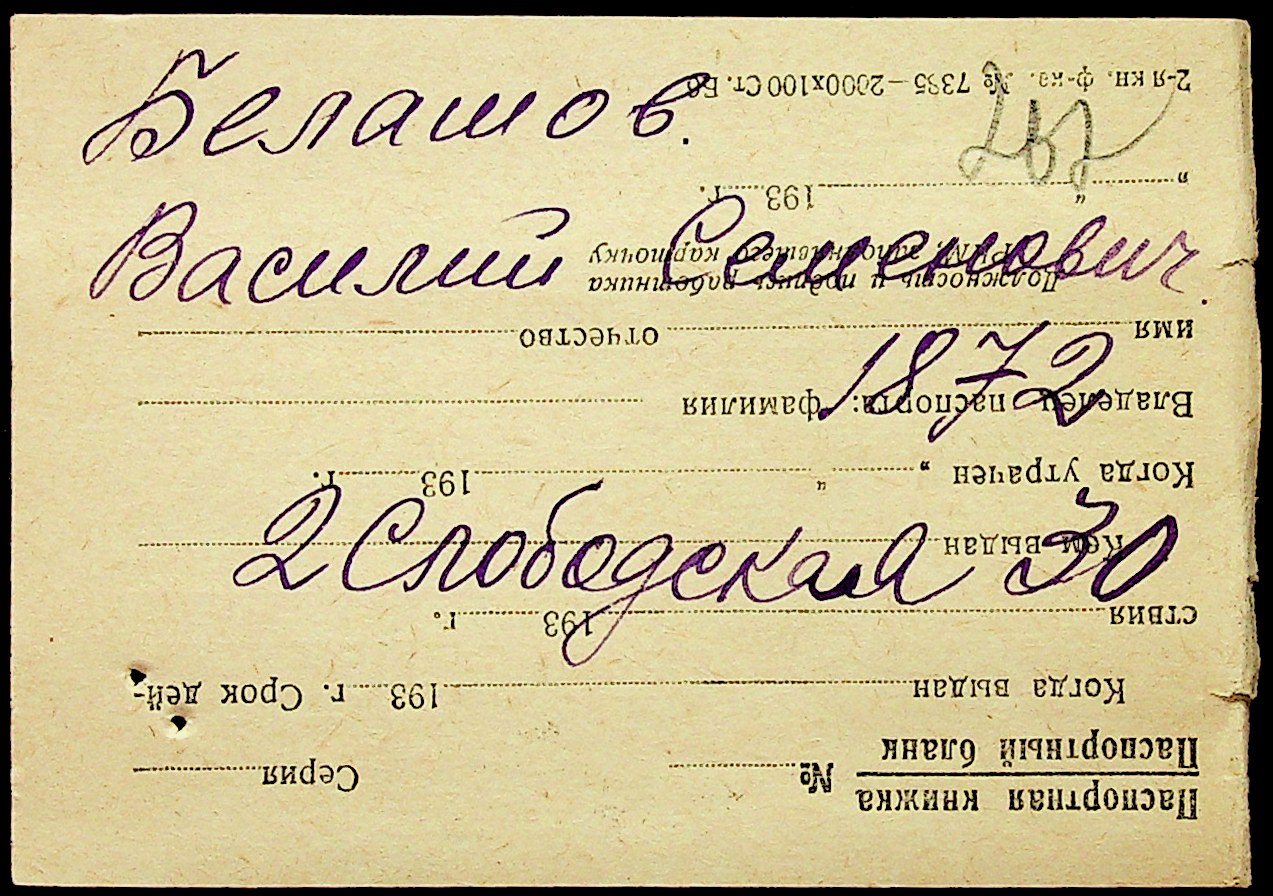 Белашов.
Василий Семенович
1872
2 Слободская 30
Паспортная книжка
Паспортный бланк
№ Серия
Когда выдан 193 г. Срок дей-
ствия 193 г.
Кем выдан
Когда утрачен „ “ 193 г.
Владелец паспорта: фамилия
имя отчество
Должность и подпись работника
РКМ, заполнившего карточку
„ “ 193 г.
2-я кн. ф-ка. № 7385—2000х100 Ст. Бб